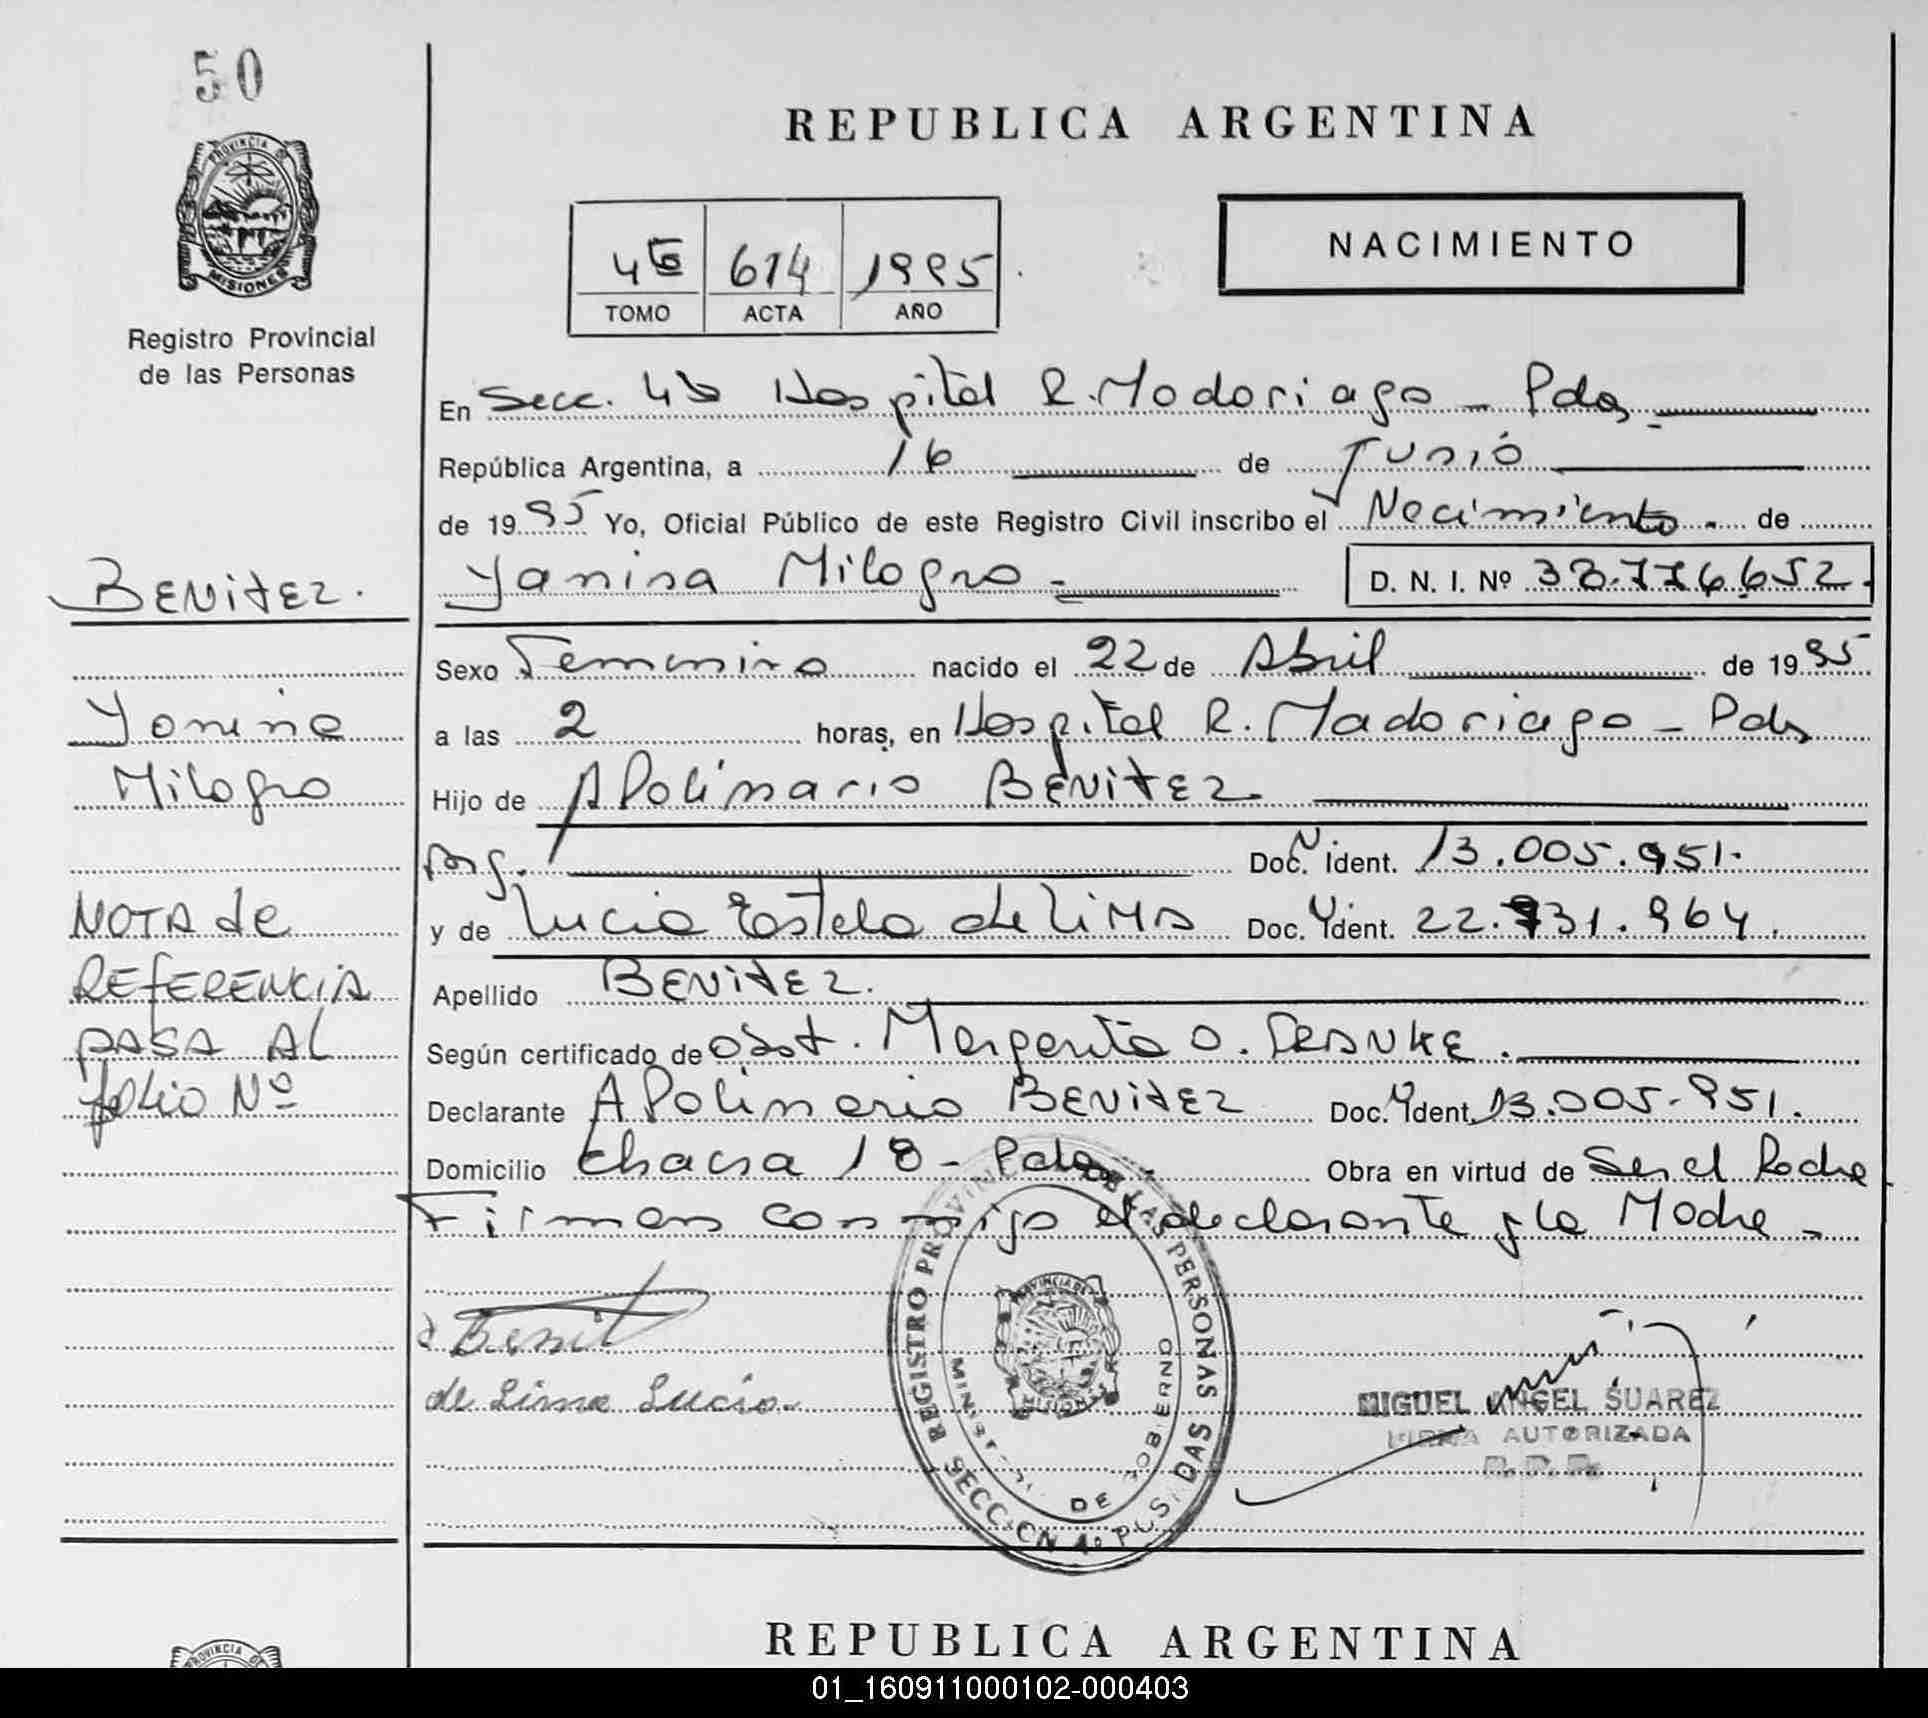 50
REPUBLICA ARGENTINA
PROVINCIA DE
MISIONES
Registro Provincial
de las Personas
NACIMIENTO
614 1995
TOMO ACTA AÑO
En Secc. 4ª Hospital R. Madariaga - Pdas.
República Argentina, a 16 de Junio
de 1995 Yo, Oficial Público de este Registro Civil inscribo el Nacimiento de
BENITEZ.
Yanina Milagro D. N. I. Nº 38.776.652.
Sexo Femenino nacido el 22 de Abril de 1995
Yanina
a las 2 horas, en Hospital R. Madariaga - Pdas
Milagro
Hijo de Apolinario BENITEZ
Arg. Doc. Ident. 13.005.951.
NOTA de
y de Lucia Estela de LIMA Doc. Ident. 22.731.964.
REFERENCIA
Apellido BENITEZ.
PASA AL
Según certificado de Obst. Margarita O.
folio Nº
Declarante Apolinario BENITEZ Doc. Ident. 13.005.951.
Domicilio Chacra 18 - Pdas. Obra en virtud de Ser el Padre
Firman conmigo el declarante y la Madre -
REGISTRO PROVINCIAL DE LAS PERSONAS
MINISTERIO DE GOBIERNO
SECCION 4º POSADAS
de Lima Lucia.
MIGUEL ANGEL SUAREZ
FIRMA AUTORIZADA
R. P. P.
REPUBLICA ARGENTINA
PROVINCIA DE
01_160911000102-000403